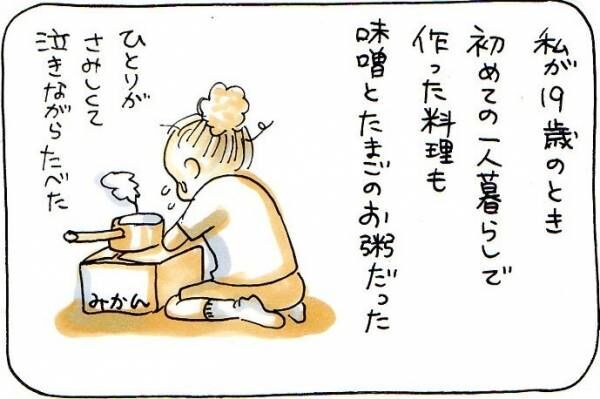 私が19歳のとき
初めての一人暮らしで
作った料理も
味噌とたまごのお粥だった
ひとりが
さみしくて
泣きながらたべた
みかん